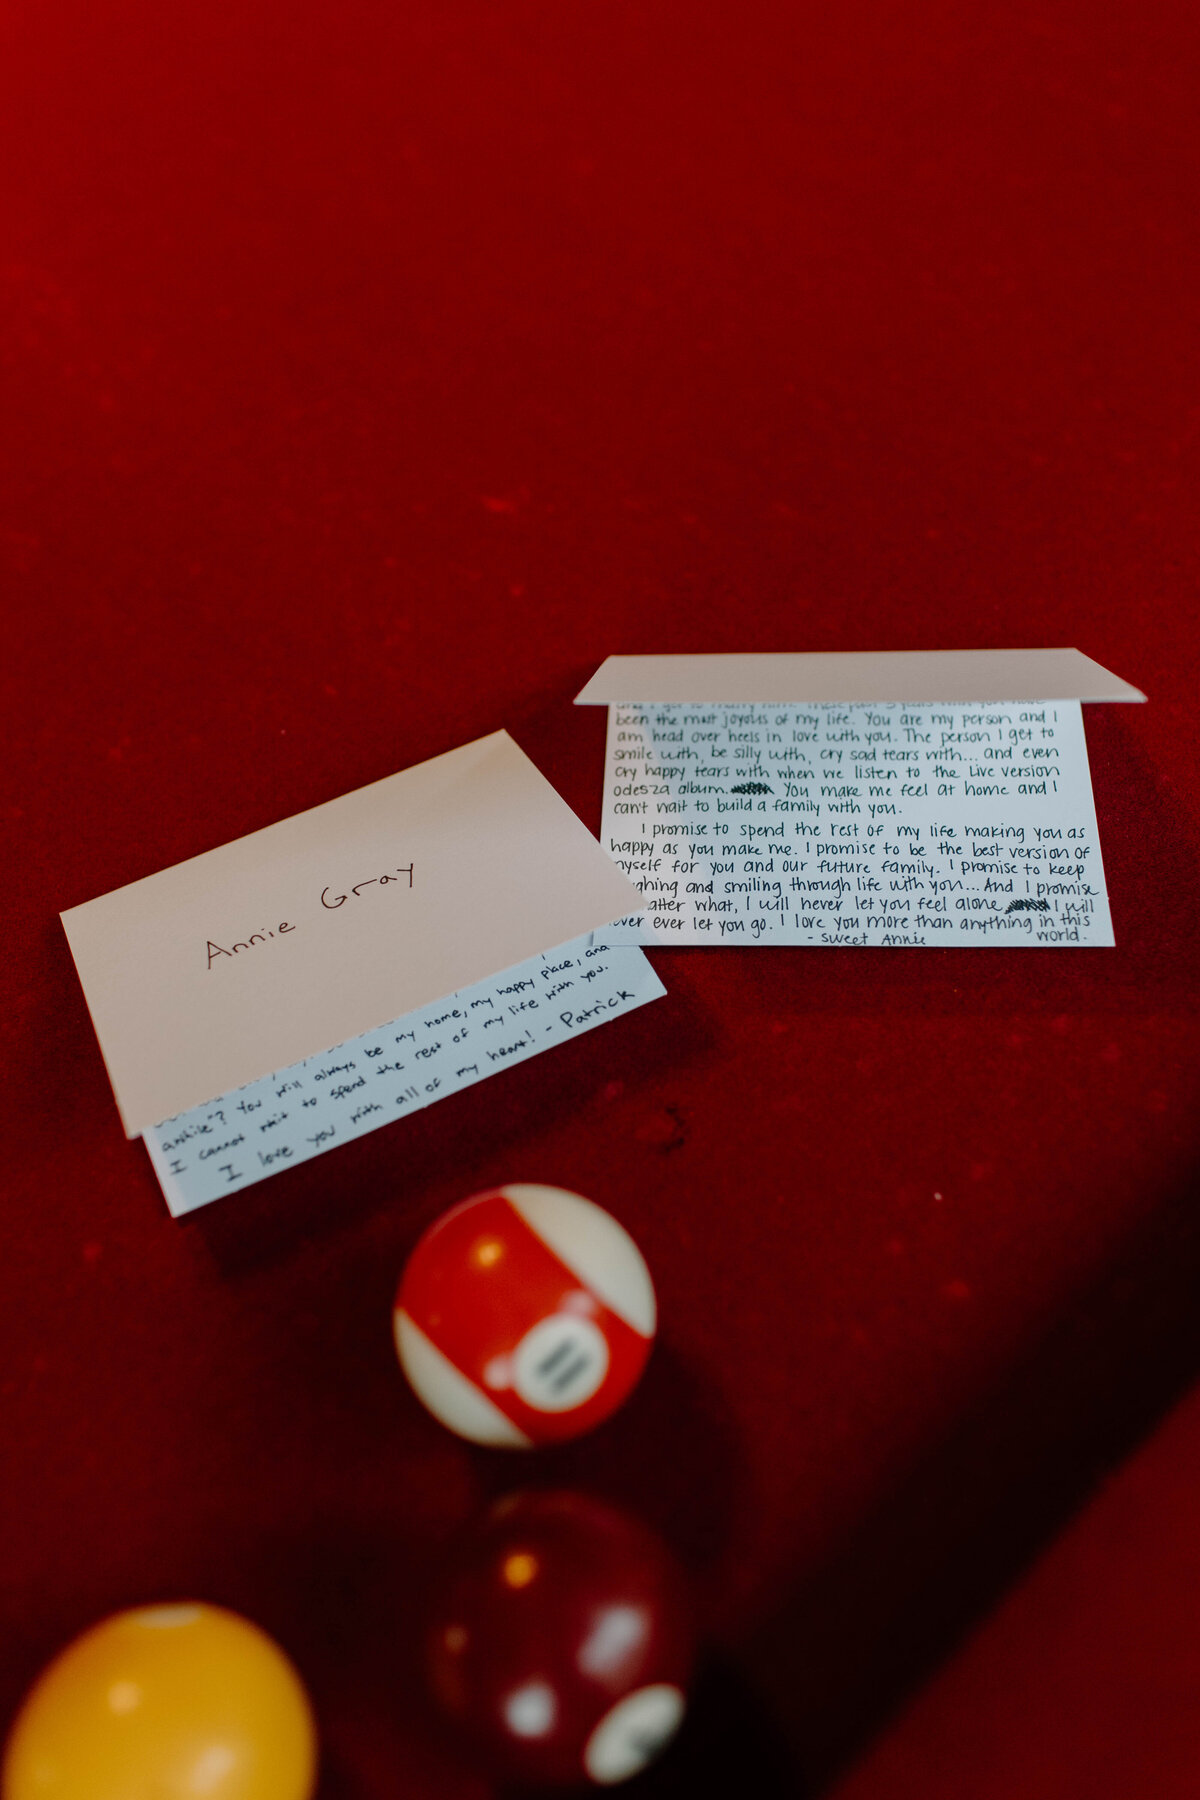 Annie Gray
my home, my happy place, and
awhile"? You will always be
I cannot wait to spend the rest of my life with you.
I love you with all of my heart! - Patrick
and I get to marry him. These past 5 years with you have
been the most joyous of my life. You are my person and I
am head over heels in love with you. The person I get to
smile with, be silly with, cry sad tears with... and even
cry happy tears with when we listen to the Live version
odesza album. You make me feel at home and I
can't wait to build a family with you.
I promise to spend the rest of my life making you as
happy as you make me. I promise to be the best version of
myself for you and our future family. I promise to keep
ghing and smiling through life with you... And I promise
atter what, I will never let you feel alone I will
ever ever let you go. I love you more than anything in this
world.
- Sweet Annie
11